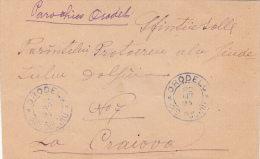 Parochiea Orodel
Sfintiei sale
Părintelui Protoereu alu Jude
țului Doljiu
No 7
La Craiova
ORODEL
ORODEL